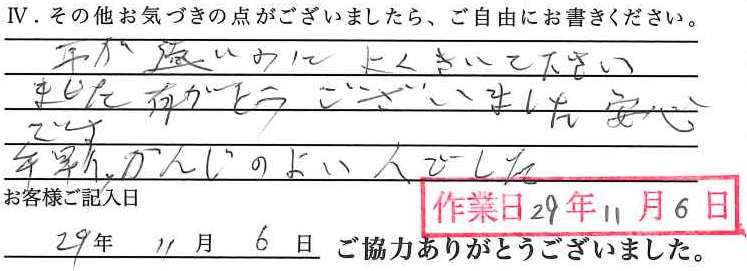 Ⅳ．その他お気づきの点がございましたら、ご自由にお書きください。
耳が遠いのに よくきいて下さい
ました 有がとう ございました 安心
です
年輩 かんじのよい人でした
お客様ご記入日
作業日29年11月6日
29年 11月 6日 ご協力ありがとうございました。